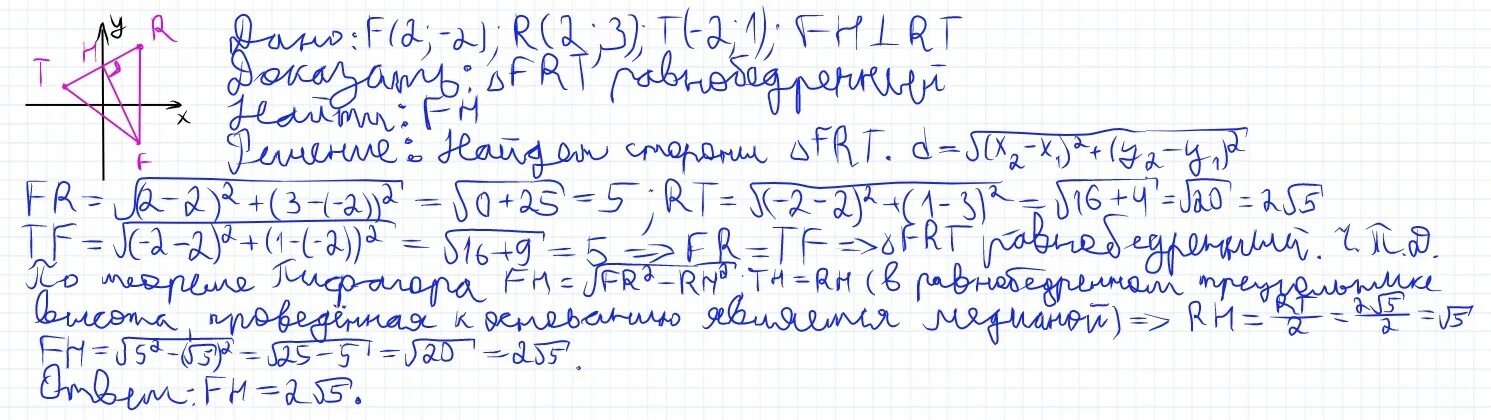 y
R
H
T
x
F
Дано: F(2;-2); R(2;3); T(-2;1); FH⊥RT
Доказать: △FRT равнобедренный
Найти: FH
Решение: Найдем стороны △FRT. d=√(x₂-x₁)²+(y₂-y₁)²
FR=√(2-2)²+(3-(-2))²=√0+25=5; RT=√(-2-2)²+(1-3)²=√16+4=√20=2√5
TF=√(-2-2)²+(1-(-2))²=√16+9=5=>FR=TF=>△FRT равнобедренный. Ч.Т.Д.
По теореме Пифагора FH=√FR²-RH². TH=RH (в равнобедренном треугольнике
высота, проведённая к основанию является медианой)=> RH=RT/2=2√5/2=√5
FH=√5²-(√5)²=√25-5=√20=2√5.
Ответ: FH=2√5.